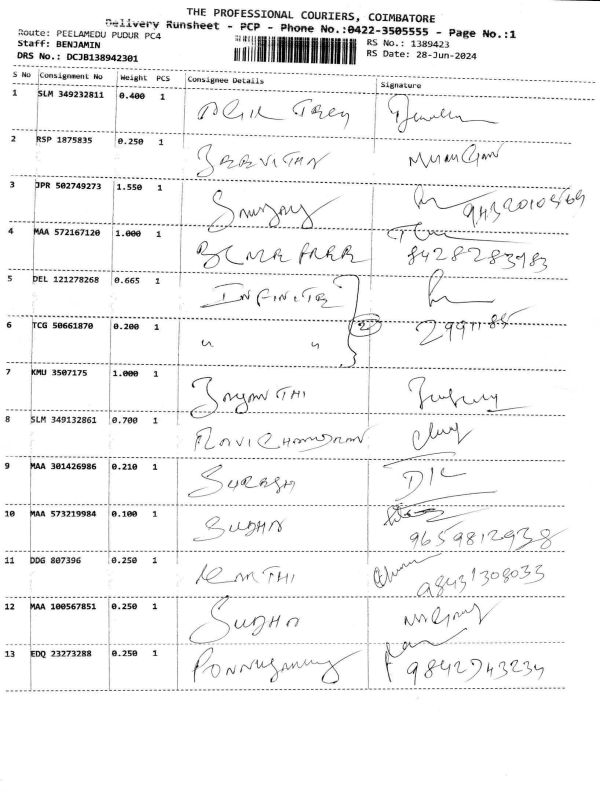 THE PROFESSIONAL COURIERS, COIMBATORE
Delivery Runsheet - PCP - Phone No.:0422-3505555 - Page No.:1
Route: PEELAMEDU PUDUR PC4
Staff: BENJAMIN
RS No.: 1389423
DRS No.: DCJB138942301
RS Date: 28-Jun-2024
S No Consignment No Weight PCS Consignee Details Signature
1 SLM 349232811 0.400 1
2 RSP 1875835 0.250 1
3 JPR 502749273 1.550 1
4 MAA 572167120 1.000 1
8428283983
5 DEL 121278268 0.665 1 INFINITE
6 TCG 50661870 0.200 1 " "
2
7 KMU 3507175 1.000 1 JAYANTHI
8 SLM 349132861 0.700 1 RAVICHANDRAN
9 MAA 301426986 0.210 1 SURESH
10 MAA 573219984 0.100 1 SUDHA
9659812938
11 DDG 807396 0.250 1 KARTHI
98431308033
12 MAA 100567851 0.250 1 SUDHA
13 EDQ 23273288 0.250 1 PONNUSAMY
9842743234